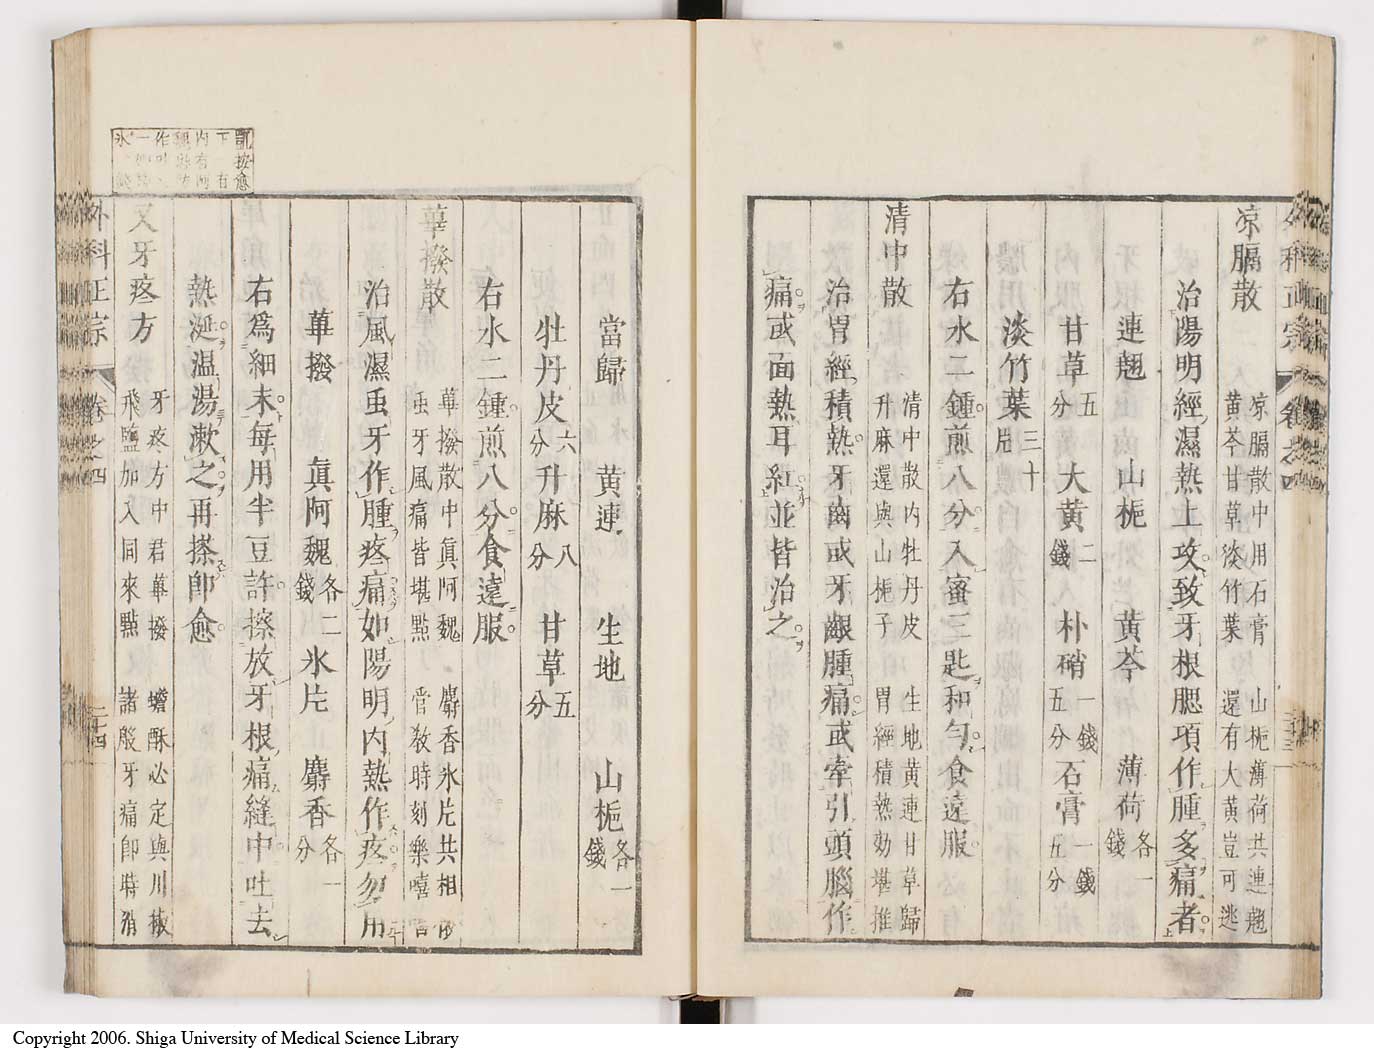 凉膈散
凉膈散中用石膏　山梔薄荷共連翹
黄芩甘草淡竹葉　還有大黄豈可逃
治陽明經濕熱上攻致牙根腮項作腫多痛者
連翹　山梔　黄芩　薄荷各一錢
甘草五分　大黄二錢　朴硝一錢五分　石膏一錢五分
淡竹葉三十片
右水二鍾煎八分入蜜三匙和勻食遠服
清中散
清中散内牡丹皮　生地黄連甘草歸
升麻還與山梔子　胃經積熱効堪推
治胃經積熱牙齒或牙齦腫痛或牽引頭腦作
痛或面熱耳紅並皆治之
當歸　黄連　生地　山梔各一錢
牡丹皮六分　升麻八分　甘草五分
右水二鍾煎八分食遠服
蓽撥散
蓽撥散中眞阿魏　麝香氷片共相
䖝牙風痛皆堪點　管教時刻樂嘻
治風濕䖝牙作腫疼痛如陽明内熱作疼勿用
蓽撥　眞阿魏各二錢　氷片　麝香各一分
右爲細末毎用半豆許擦放牙根痛縫中吐去
熱涎温湯漱之再搽卽愈
又牙疼方
牙疼方中君蓽撥　蟾酥必定與川椒
飛鹽加入同來點　諸般牙痛卽時消
外科正宗　卷之四　二十四